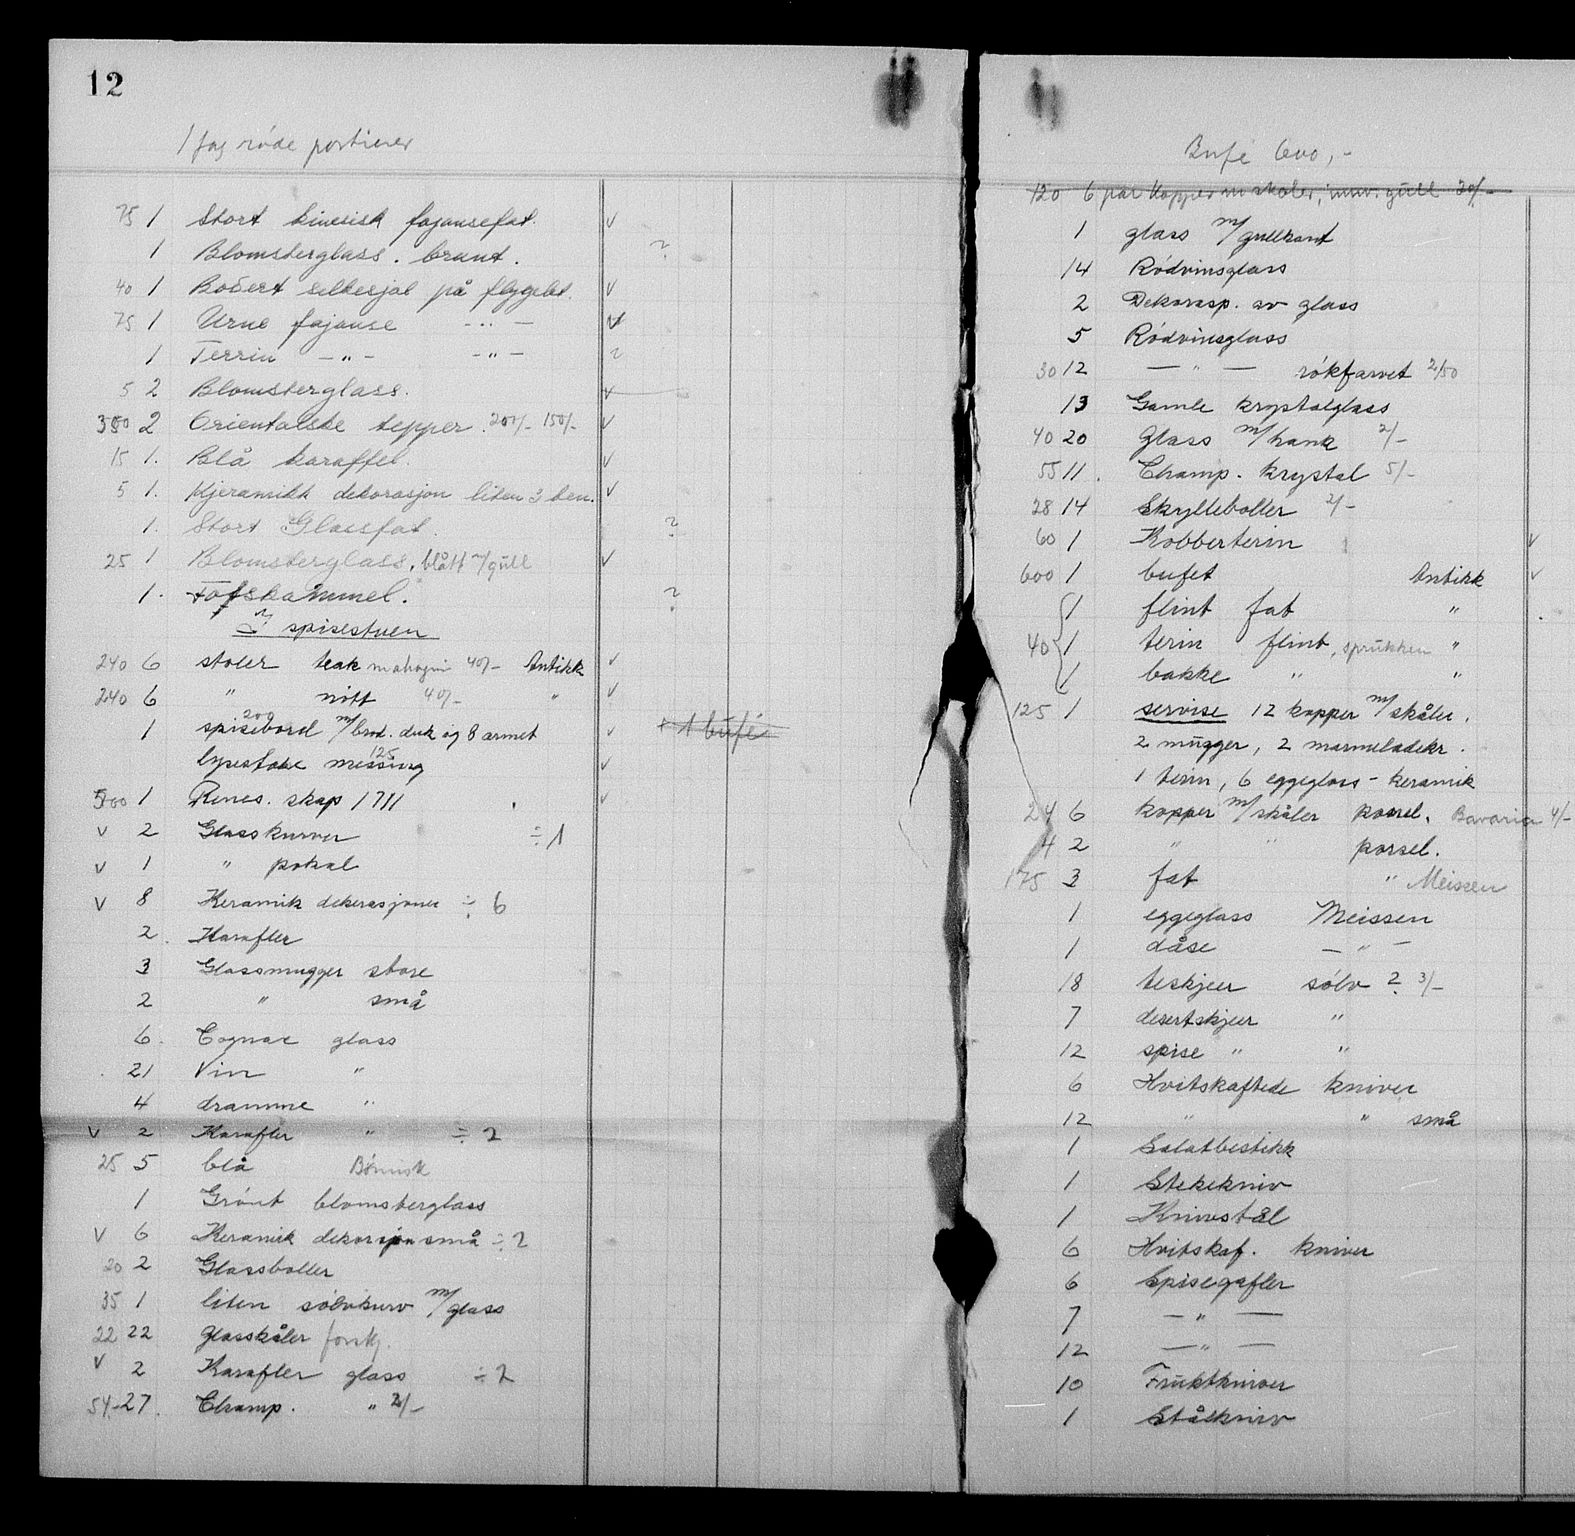 12
1 fag røde portierer
75 1 Stort kinesisk fajansefat. v
1 Blomsterglass. brunt. ?
40 1 Bodert silkesjal på flygelet. v
75 1 Urne fajanse - " - v
1 Terrin - " - - " - ?
5 2 Blomsterglass. v
350 2 Orientalske tepper. 200/- 150/- v
15 1. Blå karaffel. v
5 1. Kjeramikk dekorasjon liten 3 ben. v
1. Stort Glassfat. ?
25 1 Blomsterglass, blått m/gull v
1. Fotskammel. ?
I spisestuen
240 6 stoler teak mahogni 40/- Antikk v
240 6 " nitt 40/- " v
1 spisebord 200 m/brod. duk og 8 armet v + 1 bufé
lysestake messing 125 v
500 1 Renes. skap 1711 v
v 2 Glasskurver ÷ 1
v 1 " pokal
v 8 Keramik dekorasjoner ÷ 6
2. Karafler
3 Glassmugger store
2 " små
6. Cognac glass
21 Vin "
4 dramme "
v 2 Karafler " ÷ 2
25 5 blå Bømisk
1 Grønt blomsterglass
v 6 Keramik dekorasjon små ÷ 2
20 2 Glassboller
35 1 liten sølvkurv m/glass
22 22 Glasskåler forskj.
v 2 Karafler glass ÷ 2
54,- 27. Champ. " 2/-
Bufé 600,-
120 6 par kopper m skåler, innv. gull 20/-
1 glass m/gullkant
14 Rødvinsglass
2 Dekorasp. av glass
5 Rødvinsglass
30 12 — " — røkfarvet 2/50
13 Gamle krystalglass
40 20 Glass m/hank 2/-
55 11. Champ. krystal 5/-
28 14 Skylleboller 2/-
60 1 Kobberterin v
600 1 bufet Antikk v
1 flint fat "
40 1 terin flint, sprukken "
1 bakke " "
125 1 servise 12 kopper m/skåler.
2 mugger, 2 marmeladekr.
1 terin, 6 eggeglass - keramik
24 6 kopper m/skåler porsel. Bavaria 4/-
4 2 " " porsel.
175 3 fat " Meissen
1 eggeglass Meissen
1 dåse — " —
18 teskjeer sølv 2. 3/-
7 desertskjeer "
12 spise " "
6 Hvitskaftede kniver
12 " " små
1 Salatbestikk
1 Stekekniv
1 Knivstål
6 Hvitskaf. kniver
6 Spisegafler
7 — " —
12 — " —
10 Fruktkniver
1 Stålkniv